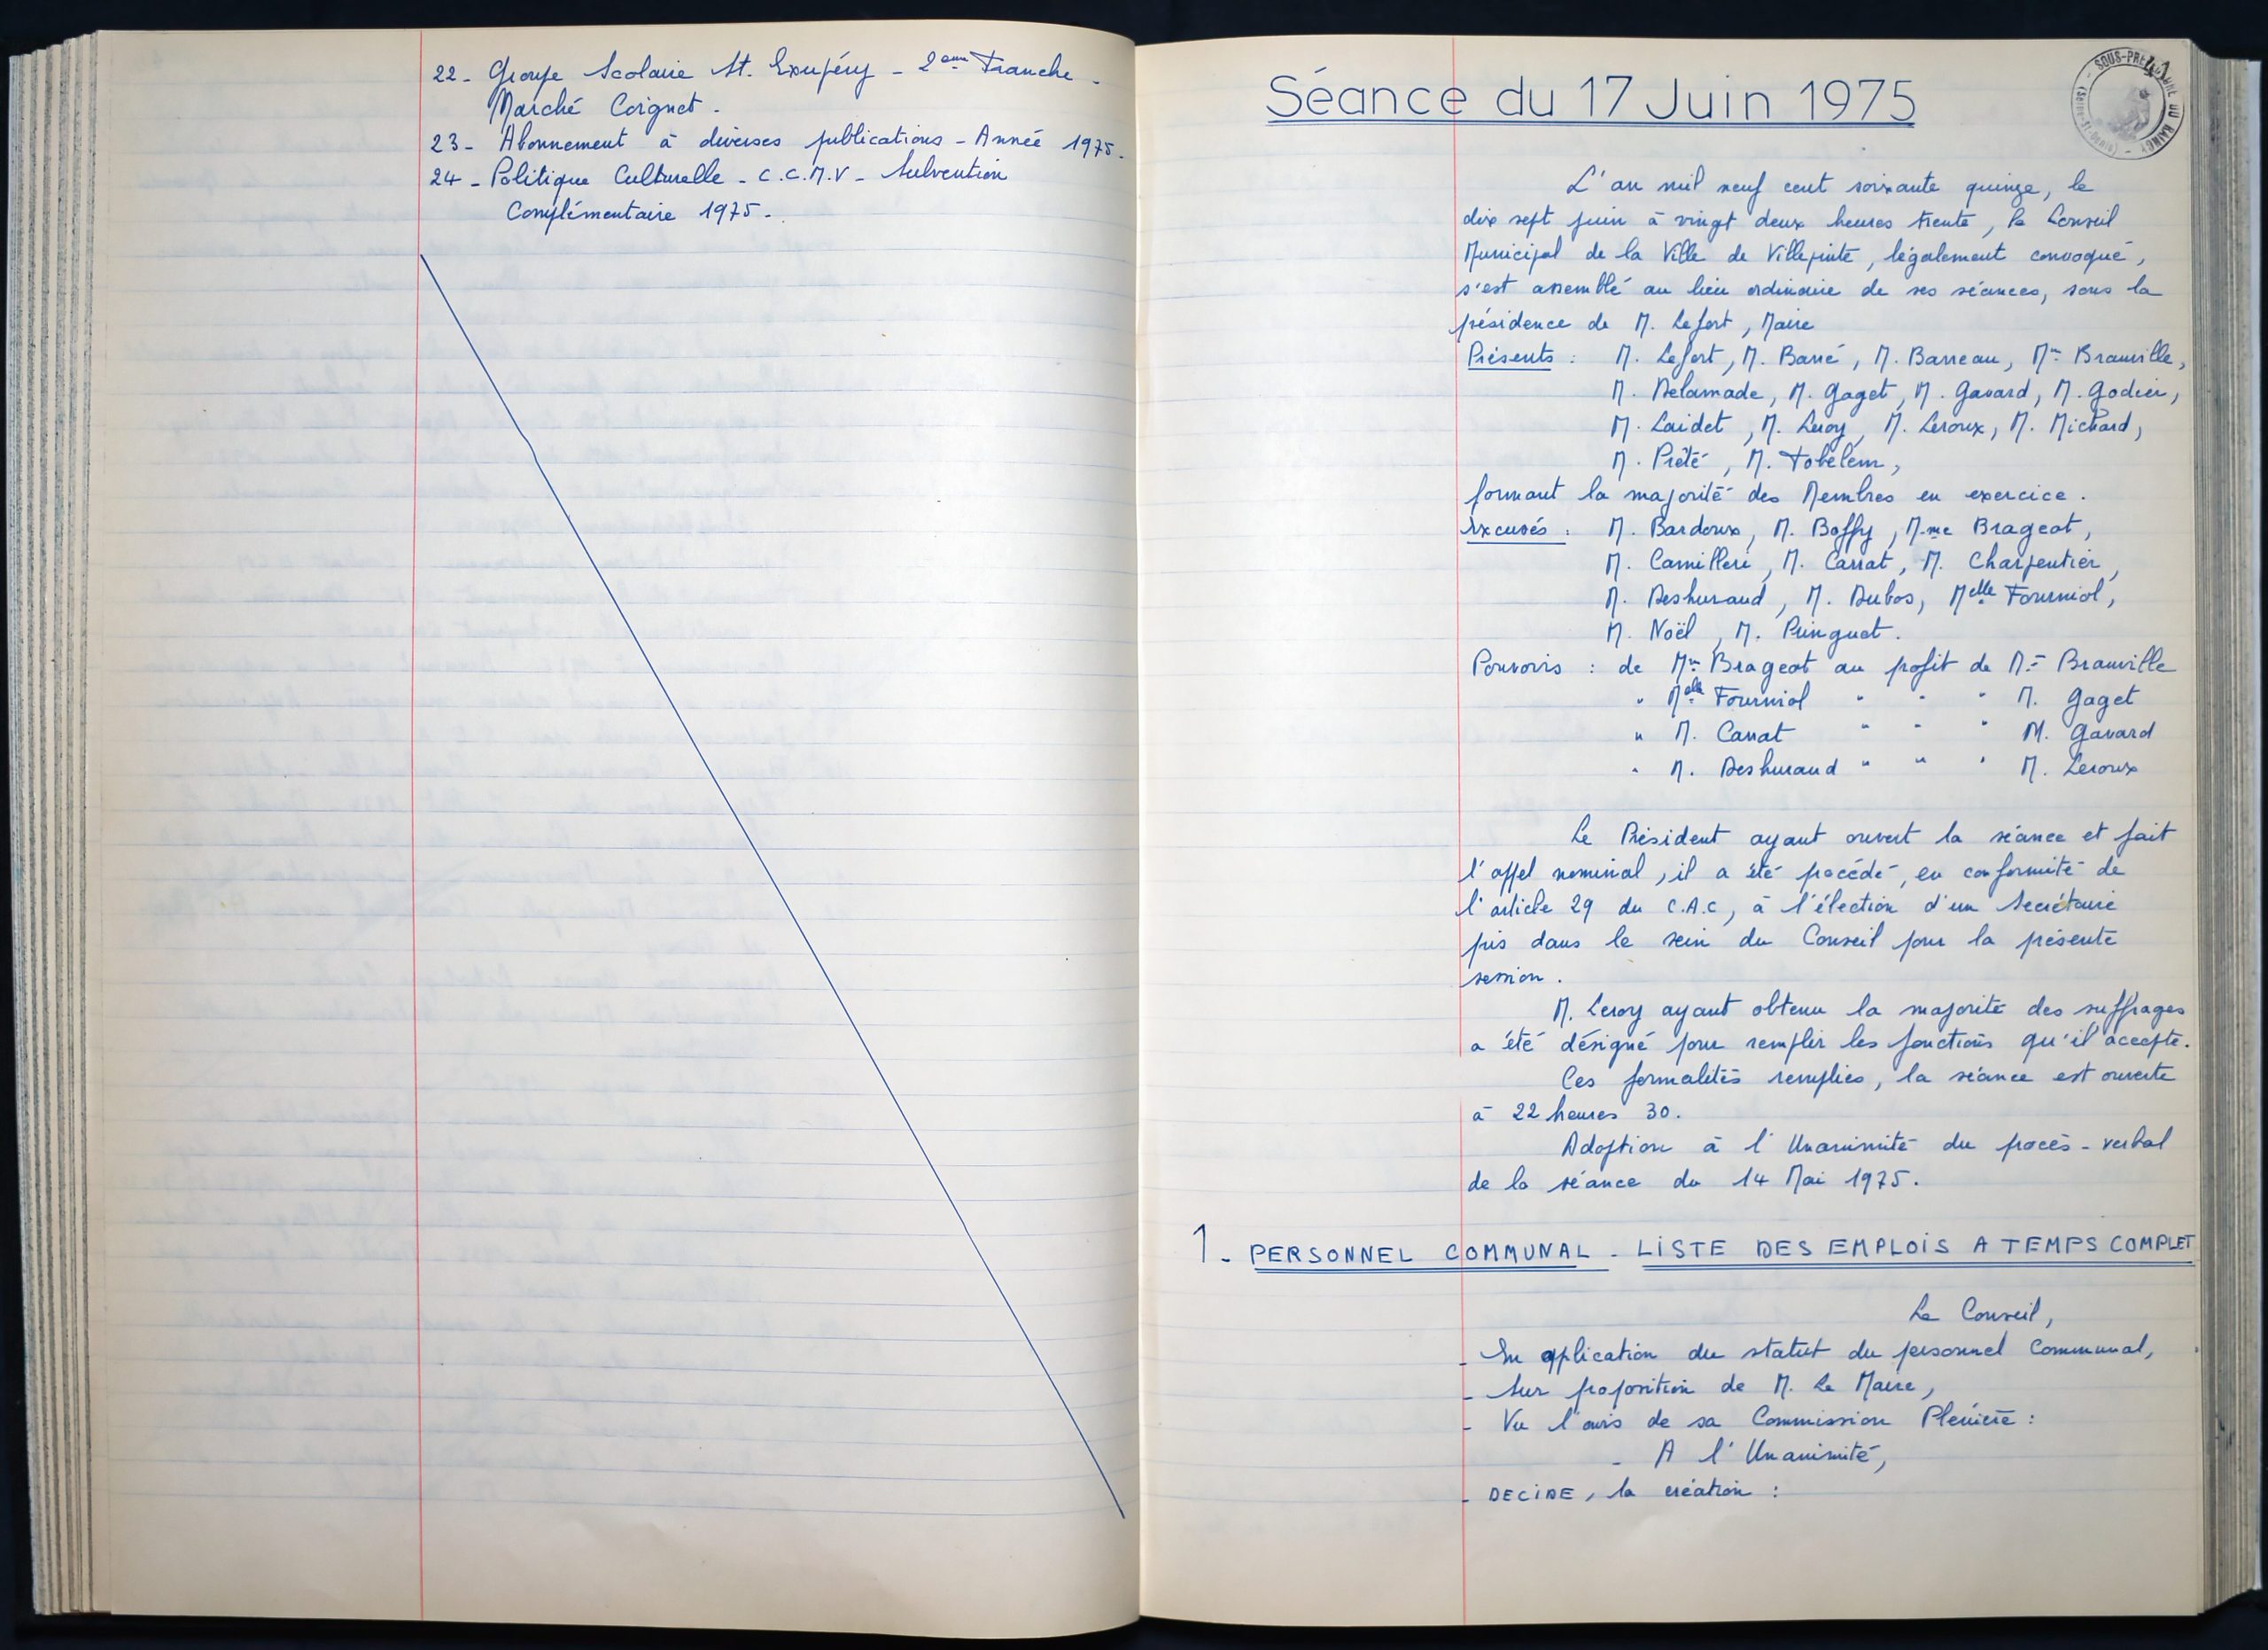 22 - Groupe Scolaire St. Exupéry - 2ème Tranche -
Marché Coignet.
23 - Abonnement à diverses publications - Année 1975.
24 - Politique Culturelle - C.C.M.V - Subvention
Complémentaire 1975 -.
SOUS-PRÉFECTURE DU RAINCY
Séance du 17 Juin 1975
L'an mil neuf cent soixante quinze, le
dix sept juin à vingt deux heures trente, le Conseil
Municipal de la Ville de Villepinte, légalement convoqué,
s'est assemblé au lieu ordinaire de ses séances, sous la
présidence de M. Lefort, Maire
Présents : M. Lefort, M. Barré, M. Barreau, Mme Brauville,
M. Delamade, M. Gaget, M. Gavard, M. Godier,
M. Laidet, M. Leroy, M. Leroux, M. Michard,
M. Piété, M. Tobelem,
formant la majorité des Membres en exercice.
Excusés : M. Bardoux, M. Boffy, Mme Brageot,
M. Camilleri, M. Carrat, M. Charpentier,
M. Deshuraud, M. Dubos, Melle Fourniol,
M. Noël, M. Pringuet.
Pouvoirs : de Mme Brageot au profit de Mme Brauville
" Melle Fourniol " " " M. Gaget
" M. Carrat " " " M. Gavard
" M. Deshuraud " " " M. Leroux
Le Président ayant ouvert la séance et fait
l'appel nominal, il a été procédé, en conformité de
l'article 29 du C.A.C, à l'élection d'un Secrétaire
pris dans le sein du Conseil pour la présente
session.
M. Leroy ayant obtenu la majorité des suffrages
a été désigné pour remplir les fonctions qu'il accepte.
Ces formalités remplies, la séance est ouverte
à 22 heures 30.
Adoption à l'Unanimité du procès-verbal
de la séance du 14 Mai 1975.
1 - PERSONNEL COMMUNAL - LISTE DES EMPLOIS A TEMPS COMPLET
Le Conseil,
- En application du statut du personnel Communal,
- Sur proposition de M. Le Maire,
- Vu l'avis de sa Commission Plénière :
- A l'Unanimité,
- DECIDE, la création :